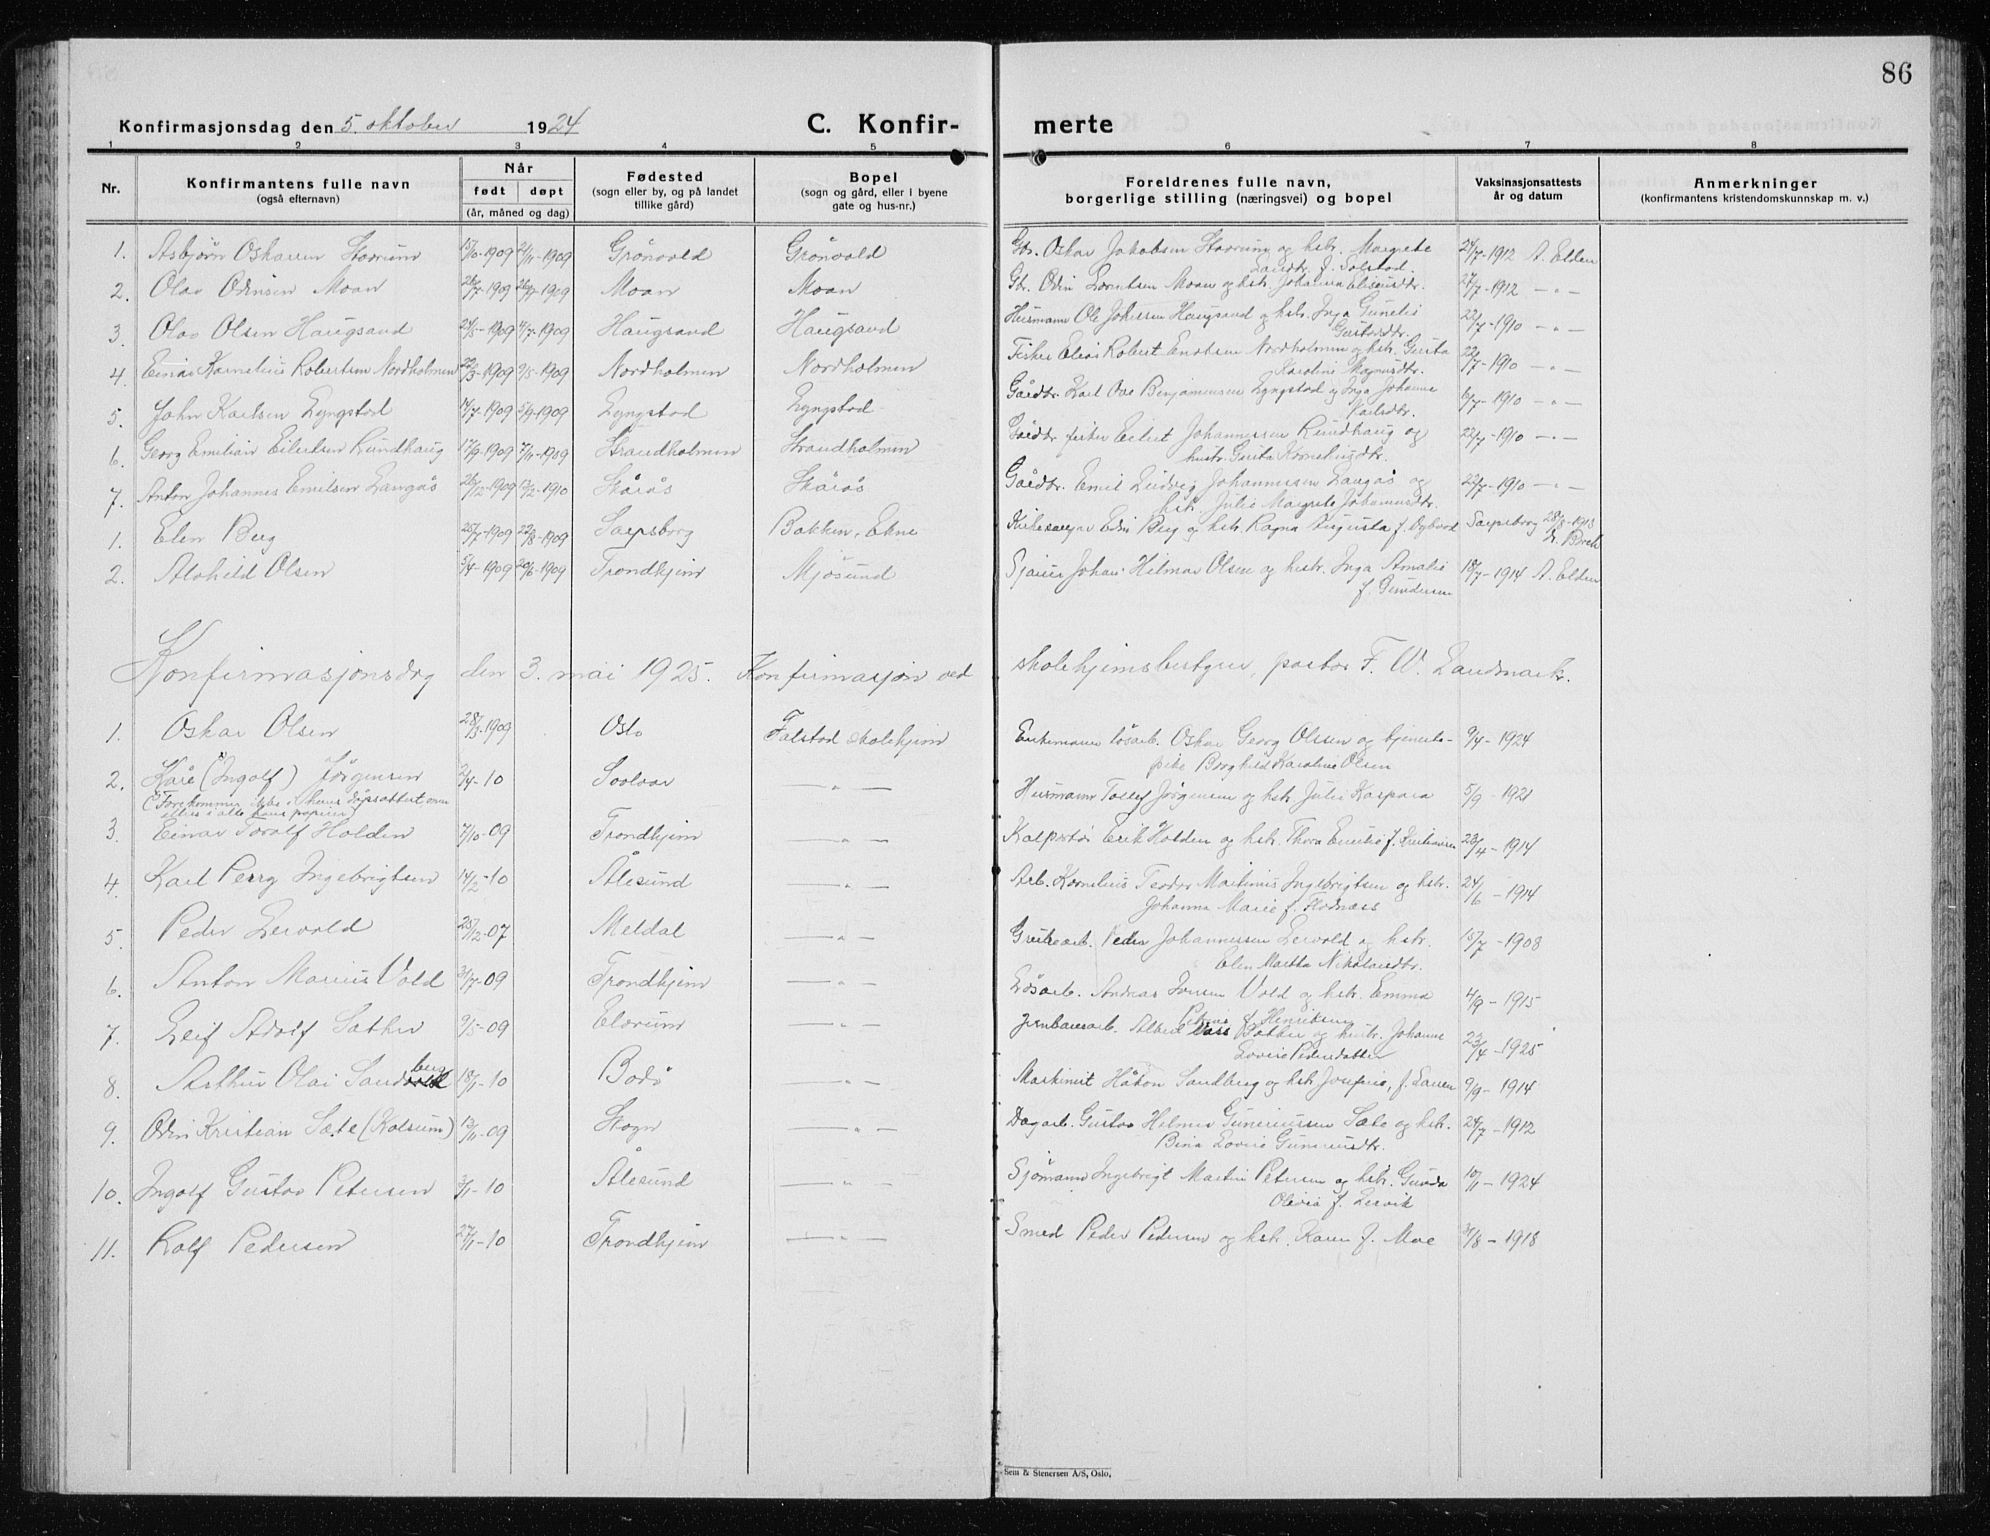 86
Konfirmasjonsdag den 5. oktober 1924 C. Konfir- merte
1 2 3 4 5 6 7 8
Nr. Konfirmantens fulle navn (også efternavn) Når født døpt (år, måned og dag) Fødested (sogn eller by, og på landet tillike gård) Bopel (sogn og gård, eller i byene gate og hus-nr.) Foreldrenes fulle navn, borgerlige stilling (næringsvei) og bopel Vaksinasjonsattests år og datum Anmerkninger (konfirmantens kristendomskunnskap m. v.)
1. Asbjørn Oskarsen Stavrum 15/10-1909 21/11-1909 Grønvold Grønvold Gbr. Oskar Jakobsen Stavrum og hstr. Margrete 24/7-1912 A. Elden
f. Tolstad.
2. Olav Odinsen Moan 26/7-1909 1909 Moan Moan Gbr. Odin Lorentsen Moan og hstr. Johanna 27/7-1912 -"-
3. Olav Olsen Haugsand 1909 4/7-1909 Haugsand Haugsand Husmann Ole Johnsen Haugsand og hstr. Inga 22/7-1910 -"-
4. Einar Kornelius Robertsen Nordholmen 22/3-1909 9/5-1909 Nordholmen Nordholmen Fisker Elias Robert Enoksen Nordholmen og hstr. Gusta 22/7-1910 -"-
Karoline Magnusdtr.
5. John Karlsen Lyngstad 14/7-1909 5/9-1909 Lyngstad Lyngstad Gårdbr. Karl Ove Benjaminsen Lyngstad og Inga Johanne 6/7-1910 -"-
Karlsdtr.
6. Georg Emilian Eilertsen Rundhaug 17/9-1909 7/11-1909 Strandholmen Strandholmen Gårdbr. fisker Eilert Johannessen Rundhaug og 22/7-1910 -"-
hustr. Gurita Korneliusdtr.
7. Anton Johannes Emilsen Langås 26/12-1909 13/2-1910 Skårås Skårås Gårdbr. Emil Ludvig Johannessen Langås og 22/7-1910 -"-
hstr. Julie Margrete Johannesdtr.
1. Elin Berg 25/7-1909 22/8-1909 Sarpsborg Bakken, Ekne Kirkesanger Edin Berg og hstr. Ragna Augusta f. Sarpsborg 28/8-1913
2. Alvhild Olsen 5/4-1909 20/6-1909 Trondhjem Mjøsund Sjauer Johan Hilmar Olsen og hstr. Inga Amalie 18/7-1914 A. Elden
f. Gundersen
Konfirmasjonsdag den 3. mai 1925. Konfirmasjon ved skolehjemsbestyrer, pastor F. W. Landmark.
1. Oskar Olsen 28/3-1909 Oslo Falstad skolehjem Enkemann løsarb. Oskar Georg Olsen og tjeneste- 9/4-1924
pike Borghild Karoline Olsen
2. Kåre (Ingolf) Jørgensen 2/4-10 Svolvær -"- Husmann Tollef Jørgensen og hstr. Julie Kaspara 5/9-1921
(Forekommer ikke i hans dåpsattest men
ellers i alle hans papirer)
3. Einar Toralf Holden 7/10-09 Trondhjem -"- Kolportør Erik Holden og hstr. Thora f. Kristiansen 23/4-1914
4. Karl Perry Ingebrigtsen 14/2-10 Ålesund -"- Arb. Kornelius Teodor Martinus Ingebrigtsen og hstr. 24/6-1914
Johanna Marie f.
5. Peder Lervold 25/12-07 Meldal -"- Grubearb. Peder Johannessen Lervold og hstr. 15/7-1908
Elen Martha Nikolaidtr.
6. Anton Marius Vold 09 Trondhjem -"- Løsarb. Andreas Jensen Vold og hstr. Emma 4/9-1915
Petrine f. Henriksen
7. Leif Adolf Sæther 9/5-09 Elverum -"- Jernbanearb. Alfred Sæther og hustr. Johanne 23/4-1925
Lovise Pedersdatter
8. Arthur Olai Sandberg 18/1-10 Bodø -"- Maskinist Håkon Sandberg og hstr. Josefine, f. Larsen 9/9-1914
9. Odin Kristian Sæte (Kolsum) 13/11-09 Skogn -"- Dagarb. Gustav Helmer Gunneriussen Sæte og hstr. 24/7-1912
Lovise Gunneriusdtr.
10. Ingolf Gustav Petersen 3/1-10 Ålesund -"- Sjømann Ingebrigt Martin Petersen og hstr. Gunda 10/11-1924
Olivia f. Lervik
11. Rolf Pedersen 27/1-10 Trondhjem -"- Smed Peder Pedersen og hstr. Karen f. Moe 31/8-1918
Sem & Stenersen A/S, Oslo.